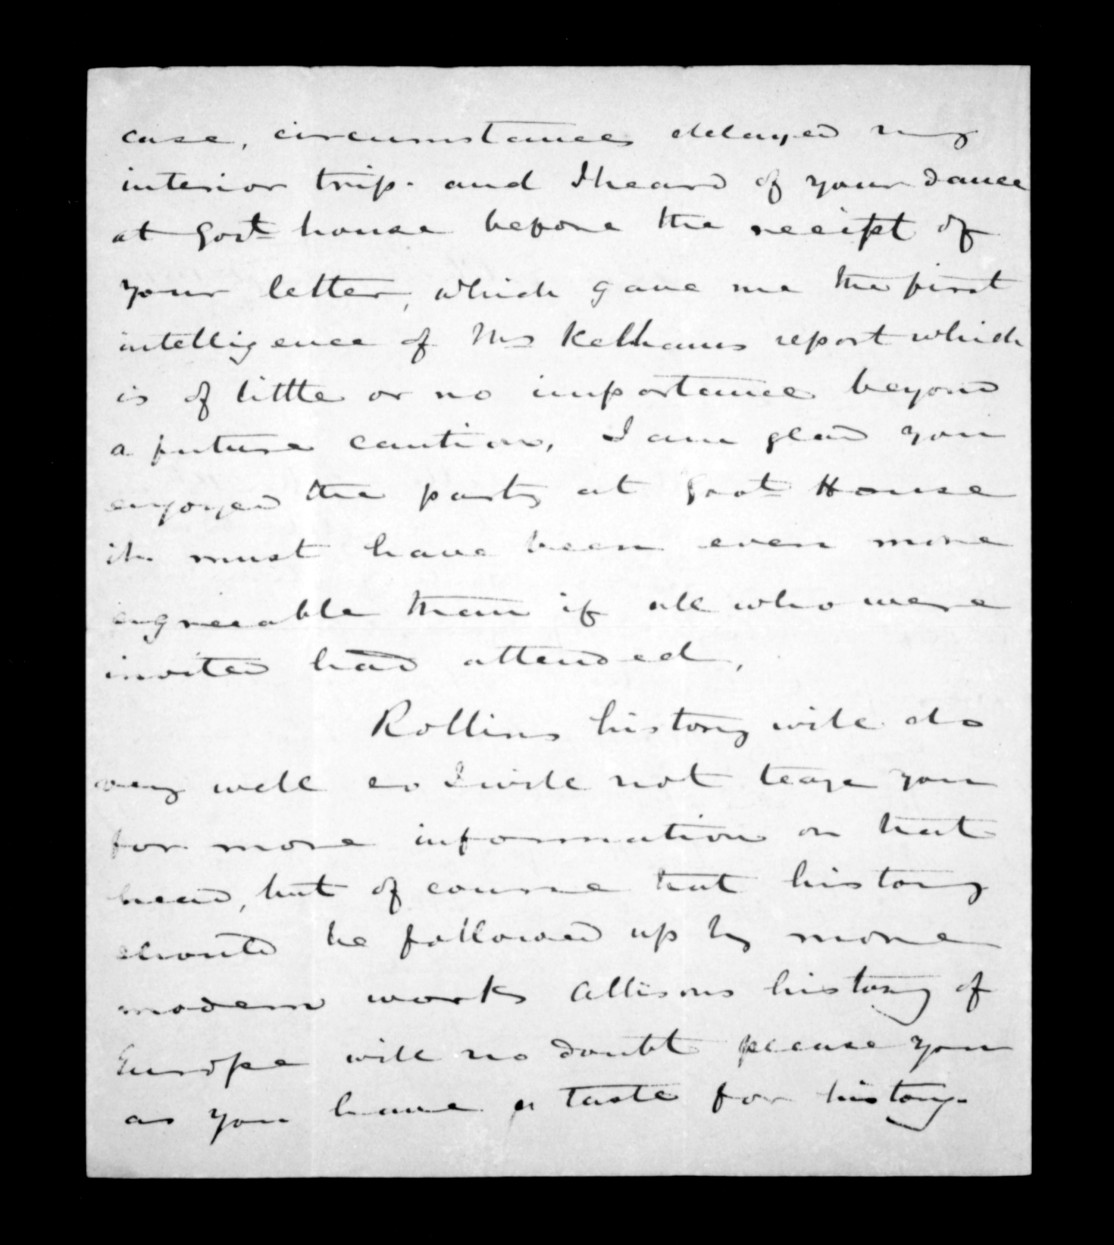 case, circumstances delayed my
interior trip. and I heard of your dance
at Govt house before the receipt of
your letter, which gave me the first
intelligence of Mrs Kelhams report which
is of little or no importance beyond
a future caution, I am glad you
enjoyed the party at Govt House
it must have been even more
agreeable than if all who were
invited had attended,
Rollins history will do
very well so I will not teaze you
for more information on that
head, but of course that history
should be followed up by more
modern works Allisons history of
Europe will no doubt please you
as you have a taste for history.